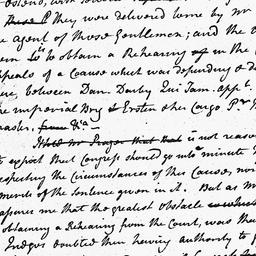 Ostend, with several
Those P they were delivered to me by Mr
e agent of those Gentlemen; and the
to obtain a Rehearing of in the C
ppeals of a Cause which was depending
between Dan. Darby Qui Tam. appt.
he imperial Brig Ersten & her Cargo
aster, &ca.—
is not reason
to expect that Congress should go into minute
respecting the Circumstances of the Cause, nor
ments of the Sentence given in it. But as M
assures me that the greatest obstacle
obtaining a Rehearing from the Court, was tha
Judges doubted their having authority to